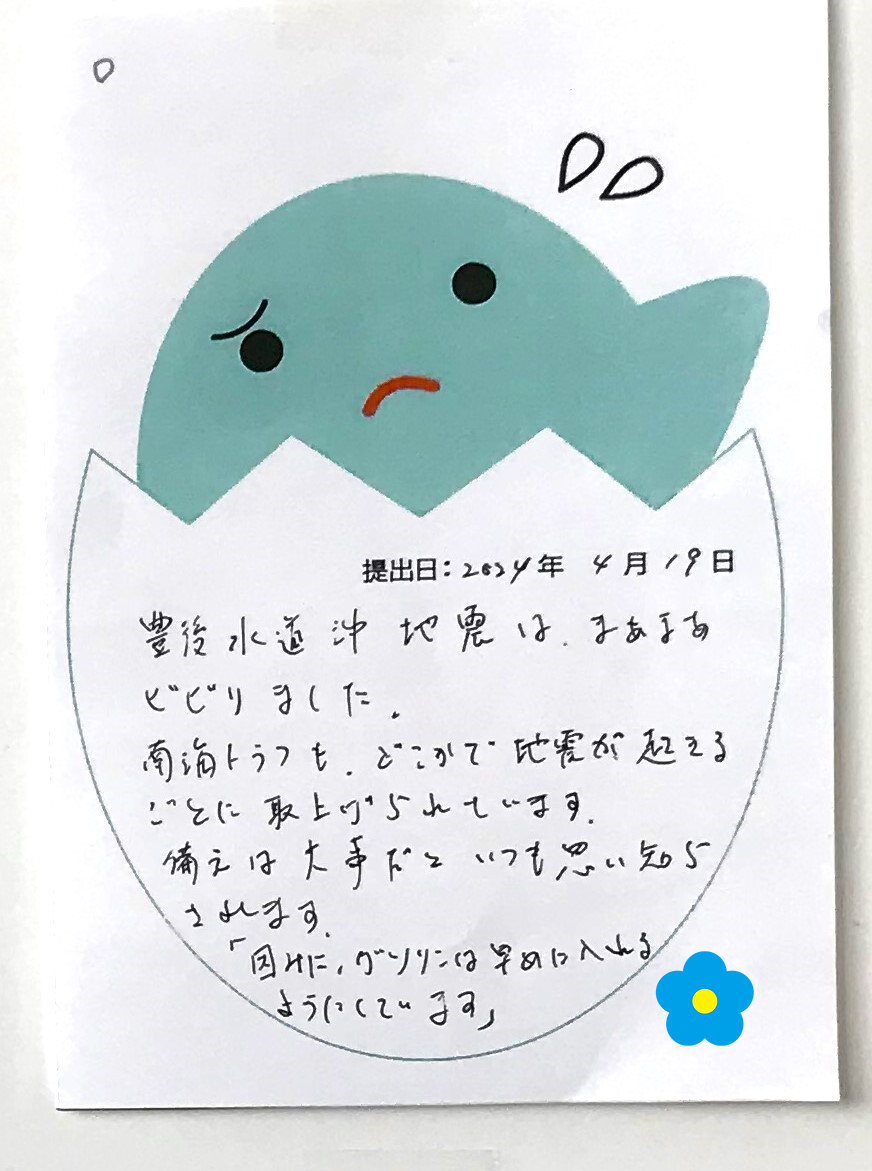 提出日：2024年 4月19日
豊後水道沖地震は、まあまあ
ビビりました。
南海トラフも、どこかで地震が起える
ごとに取上げられています。
備えは大事だといつも思い知ら
されます。
「因みに、ガソリンは早めに入れる
ようにしています」